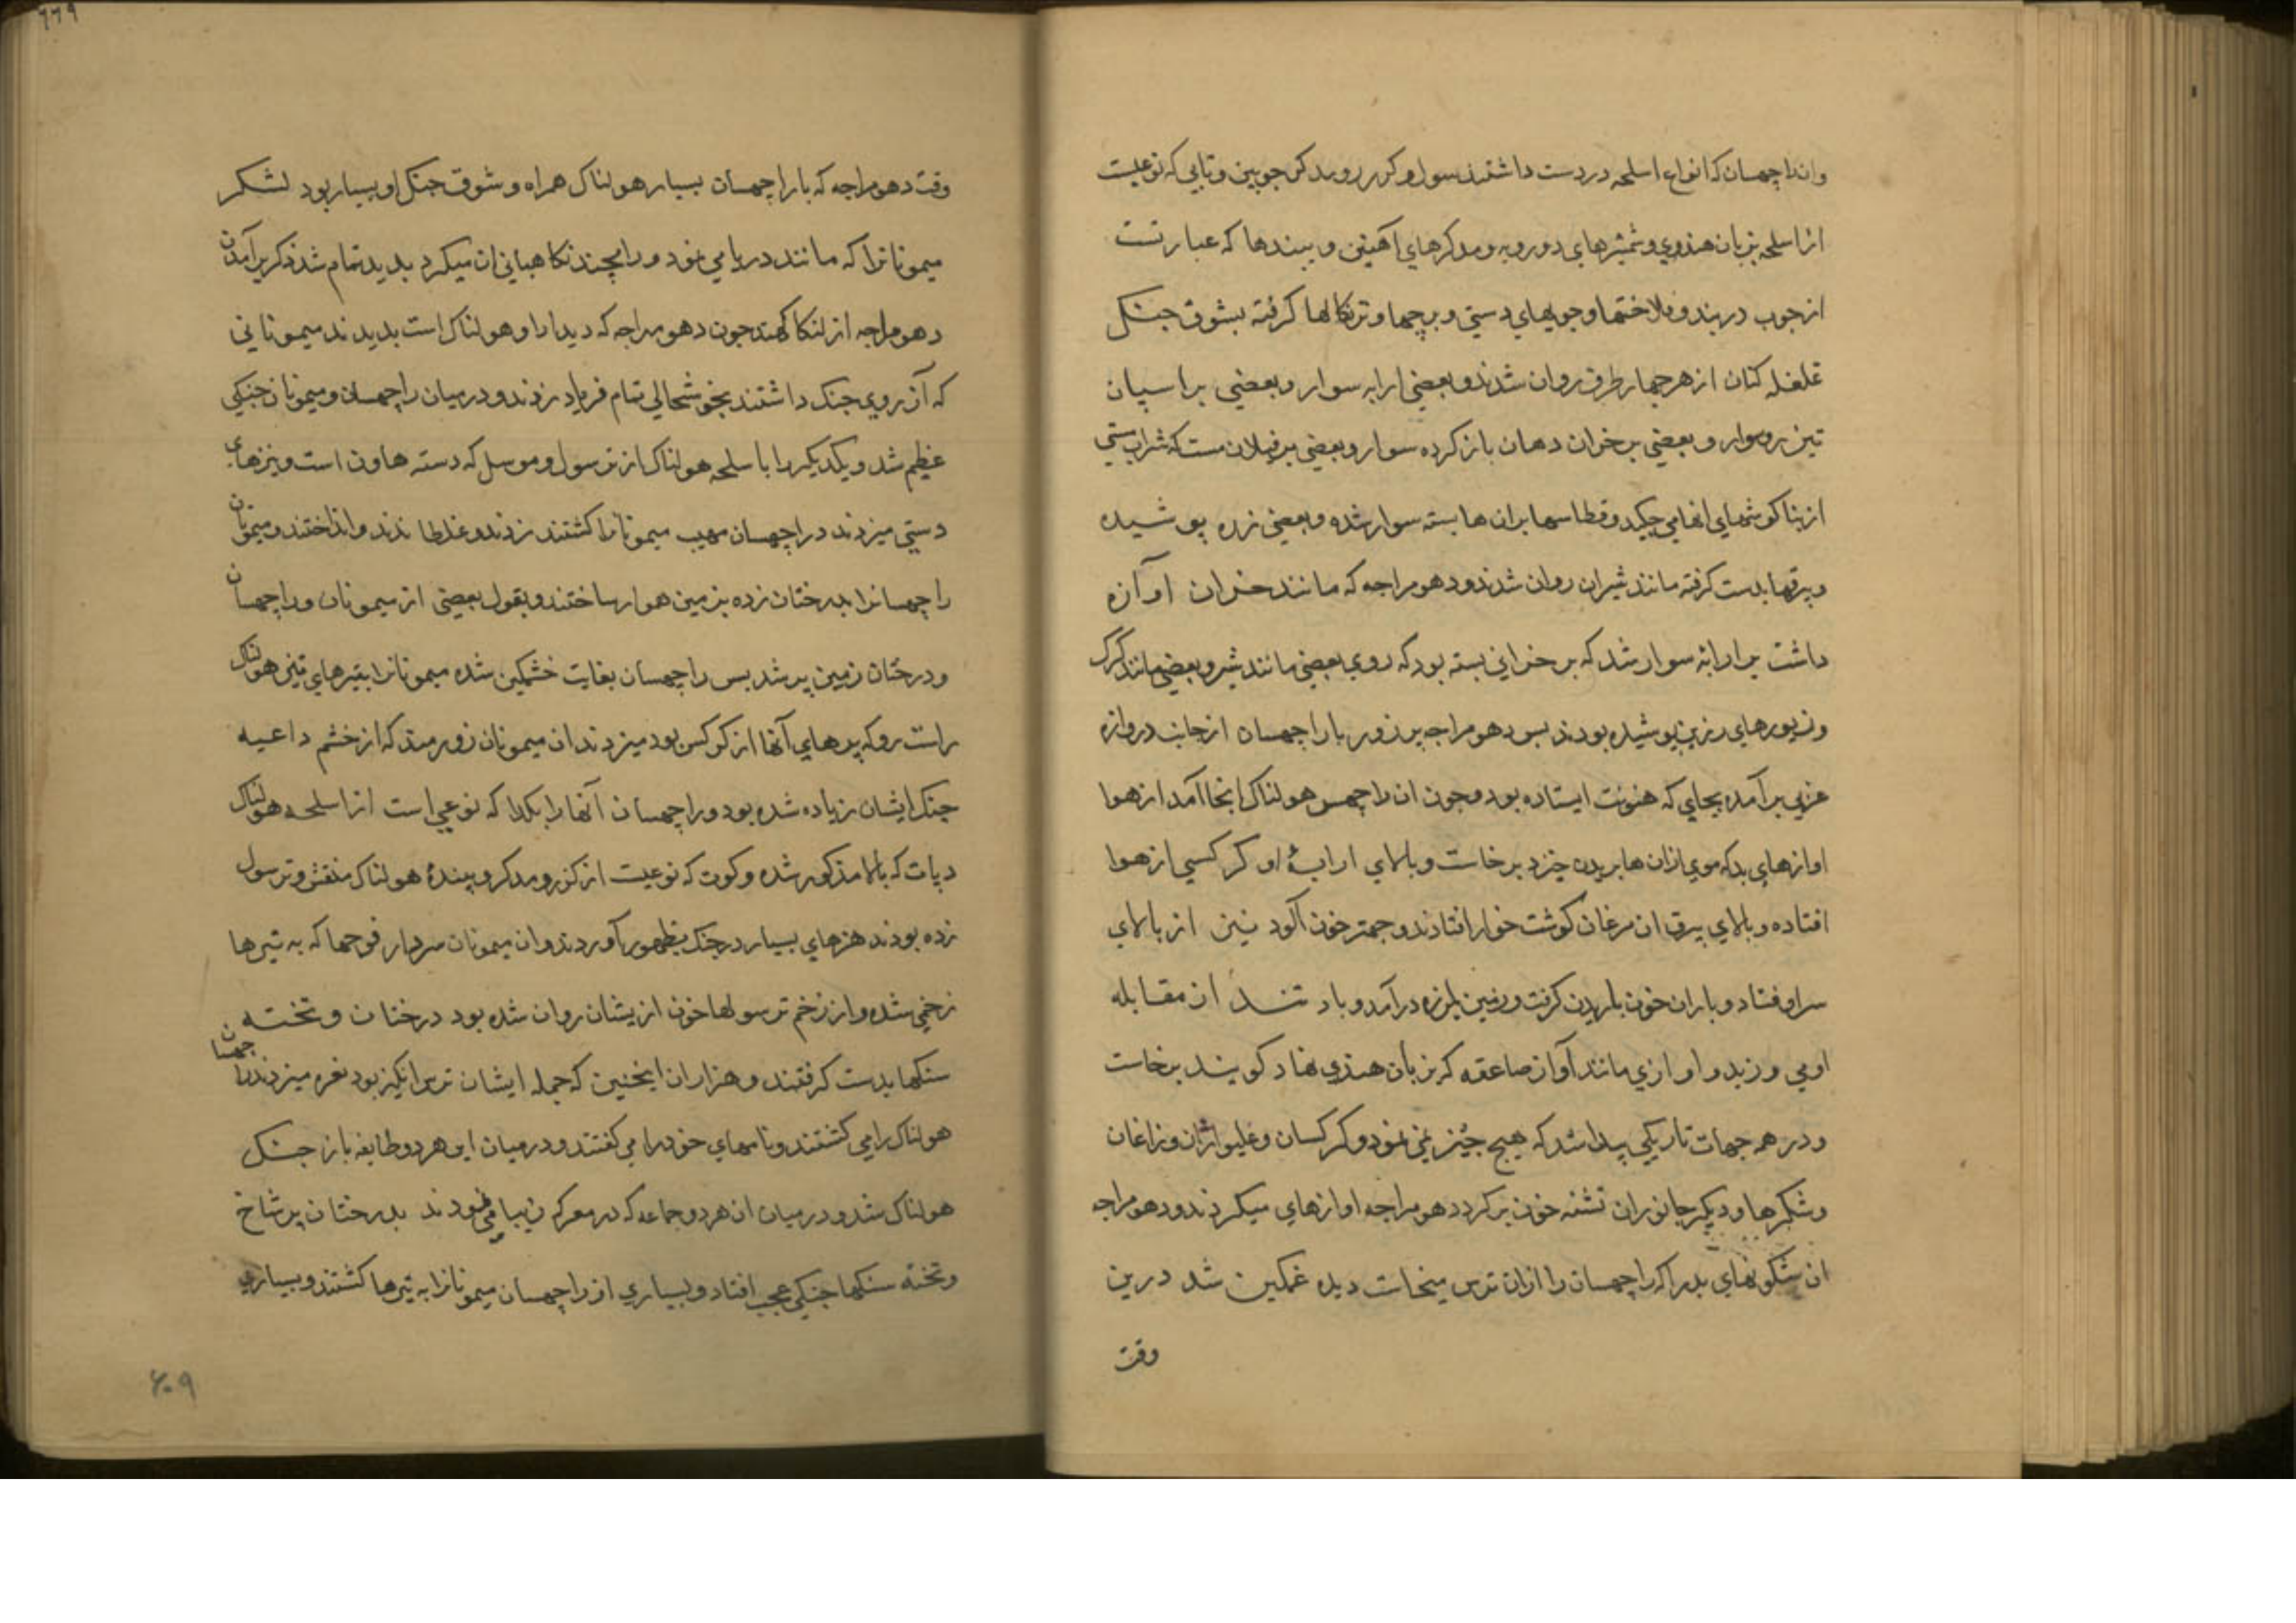 وان راچهسان که انواع اسلحه در دست داشتند سول و کرز و مدکر چوبین و تابی که نوعیست
از اسلحه بزبان هندوی و شمشیرهای دورویه و مدکرهای آهنین و بیندها که عبارتست
از چوب دربند و فلاختها و چوبهای دستی و برچها و ترنکالها کرفته بشوق جنک
غلغله کنان از هر چهار طرف روان شدند و بعضی ارابه سوار و بعضی بر اسپان
تیزرو سوار و بعضی بر خران دهان باز کرده سوار و بعضی بر فیلان مست که شراب مستی
از بناکوشهای انها می چکید و قطاسها بران ها بسته سوار شده و بعضی زره پوشیده
و بیرقها بدست کرفته مانند شیران روان شدند و دهومراجه که مانند خران اوآزه
داشت بر ارابه سوار شد که بر خرانی بسته بود که روی بعضی مانند شیر و بعضی مانند کرک
و زیورهای زرین پوشیده بودند بس دهومراجه پرزور با راچهسان از جانب دروازه
غربی برآمده بجای که هنونت ایستاده بود و چون ان راچهس هولناک انجا آمد از هوا
اوازهای بد که موی ازان ها بریدن خیزد برخاست و بالای ارابهٔ او کرکسی از هوا
افتاده و بالای بیرق ان مرغان کوشت خوار افتادند و چهتر خون آلود نیز از بالای
سر او فتاد و باران خون باریدن کرفت و زمین بلرزه درآمد و باد تند از مقابله
او می وزید و اوازی مانند آواز صاعقه که بزبان هندی نهاد کویند برخاست
و در همه جهات تاریکی پیدا شد که هیچ چیز نمی نمود و کرکسان و غلیواژان و زاغان
و شکرها و دیکر جانوران تشنه خون برکرد دهومراجه اوازهای میکردند و دهومراجه
ان شکونهای بد را که راچهسان را ازان ترس میخاست دیده غمکین شد درین
وقت
وقت دهومراجه که با راچهسان بسیار هولناک همراه و شوق جنک او بسیار بود لشکر
میمونانرا که مانند دریا می نمود و رامچند نکاهبانی ان میکرد بدید تمام شد ذکر برآمدن
دهومراجه از لنکا کهند چون دهومراجه که دیدار او هولناک است بدیدند میمونانی
که آرزوی جنک داشتند بخوشحالی تمام فریاد زدند و درمیان راچهسان و میمونان جنکی
عظیم شد و یکدیکر را با سلحه هولناک از ترسول و موسل که دسته هاون است و نیزهای
دستی میزدند و راچهسان مهیب میمونانرا کشتند زدند و غلطانند و انداختند و میمونان
راچهسانرا بدرختان زده بزمین هوار ساختند و بقول بعضی از میمونان و راچهسان
و درختان زمین پر شد بس راچهسان بغایت خشمکین شده میمونانرا بتیرهای تیز هولناک
راست رو که پرهای آنها از کرکس بود میزدند ان میمونان زورمند که از خشم داعیه
جنک ایشان زیاده شده بود و راچهسان آنها را بکدا که نوعی است از اسلحه هولناک
و پات که بالا مذکور شده و کوت که نوعیت از کرز و مدکر و بیندهٔ هولناک منقش و ترسول
زده بودند هنرهای بسیار در جنک بظهور آوردند و ان میمونان سردار فوجها که به تیرها
زخمی شده و از زخم ترسولها خون ازیشان روان شده بود درختان و تخته
سنکها بدست کرفتند و هزاران اینچنین که جمله ایشان ترس انکیز بود نعره میزدند راچهسان
هولناک را می کشتند و نامهای خود را می کفتند و درمیان این هر دو طایفه باز جنک
هولناک شد و درمیان ان هر دو جماعه که در معرکه زیبا می نمودند بدرختان پرشاخ
و تخته سنکها جنکی عجب افتاد و بسیاری از راچهسان میمونانرا به تیرها کشتند و بسیاری
۶۰۹